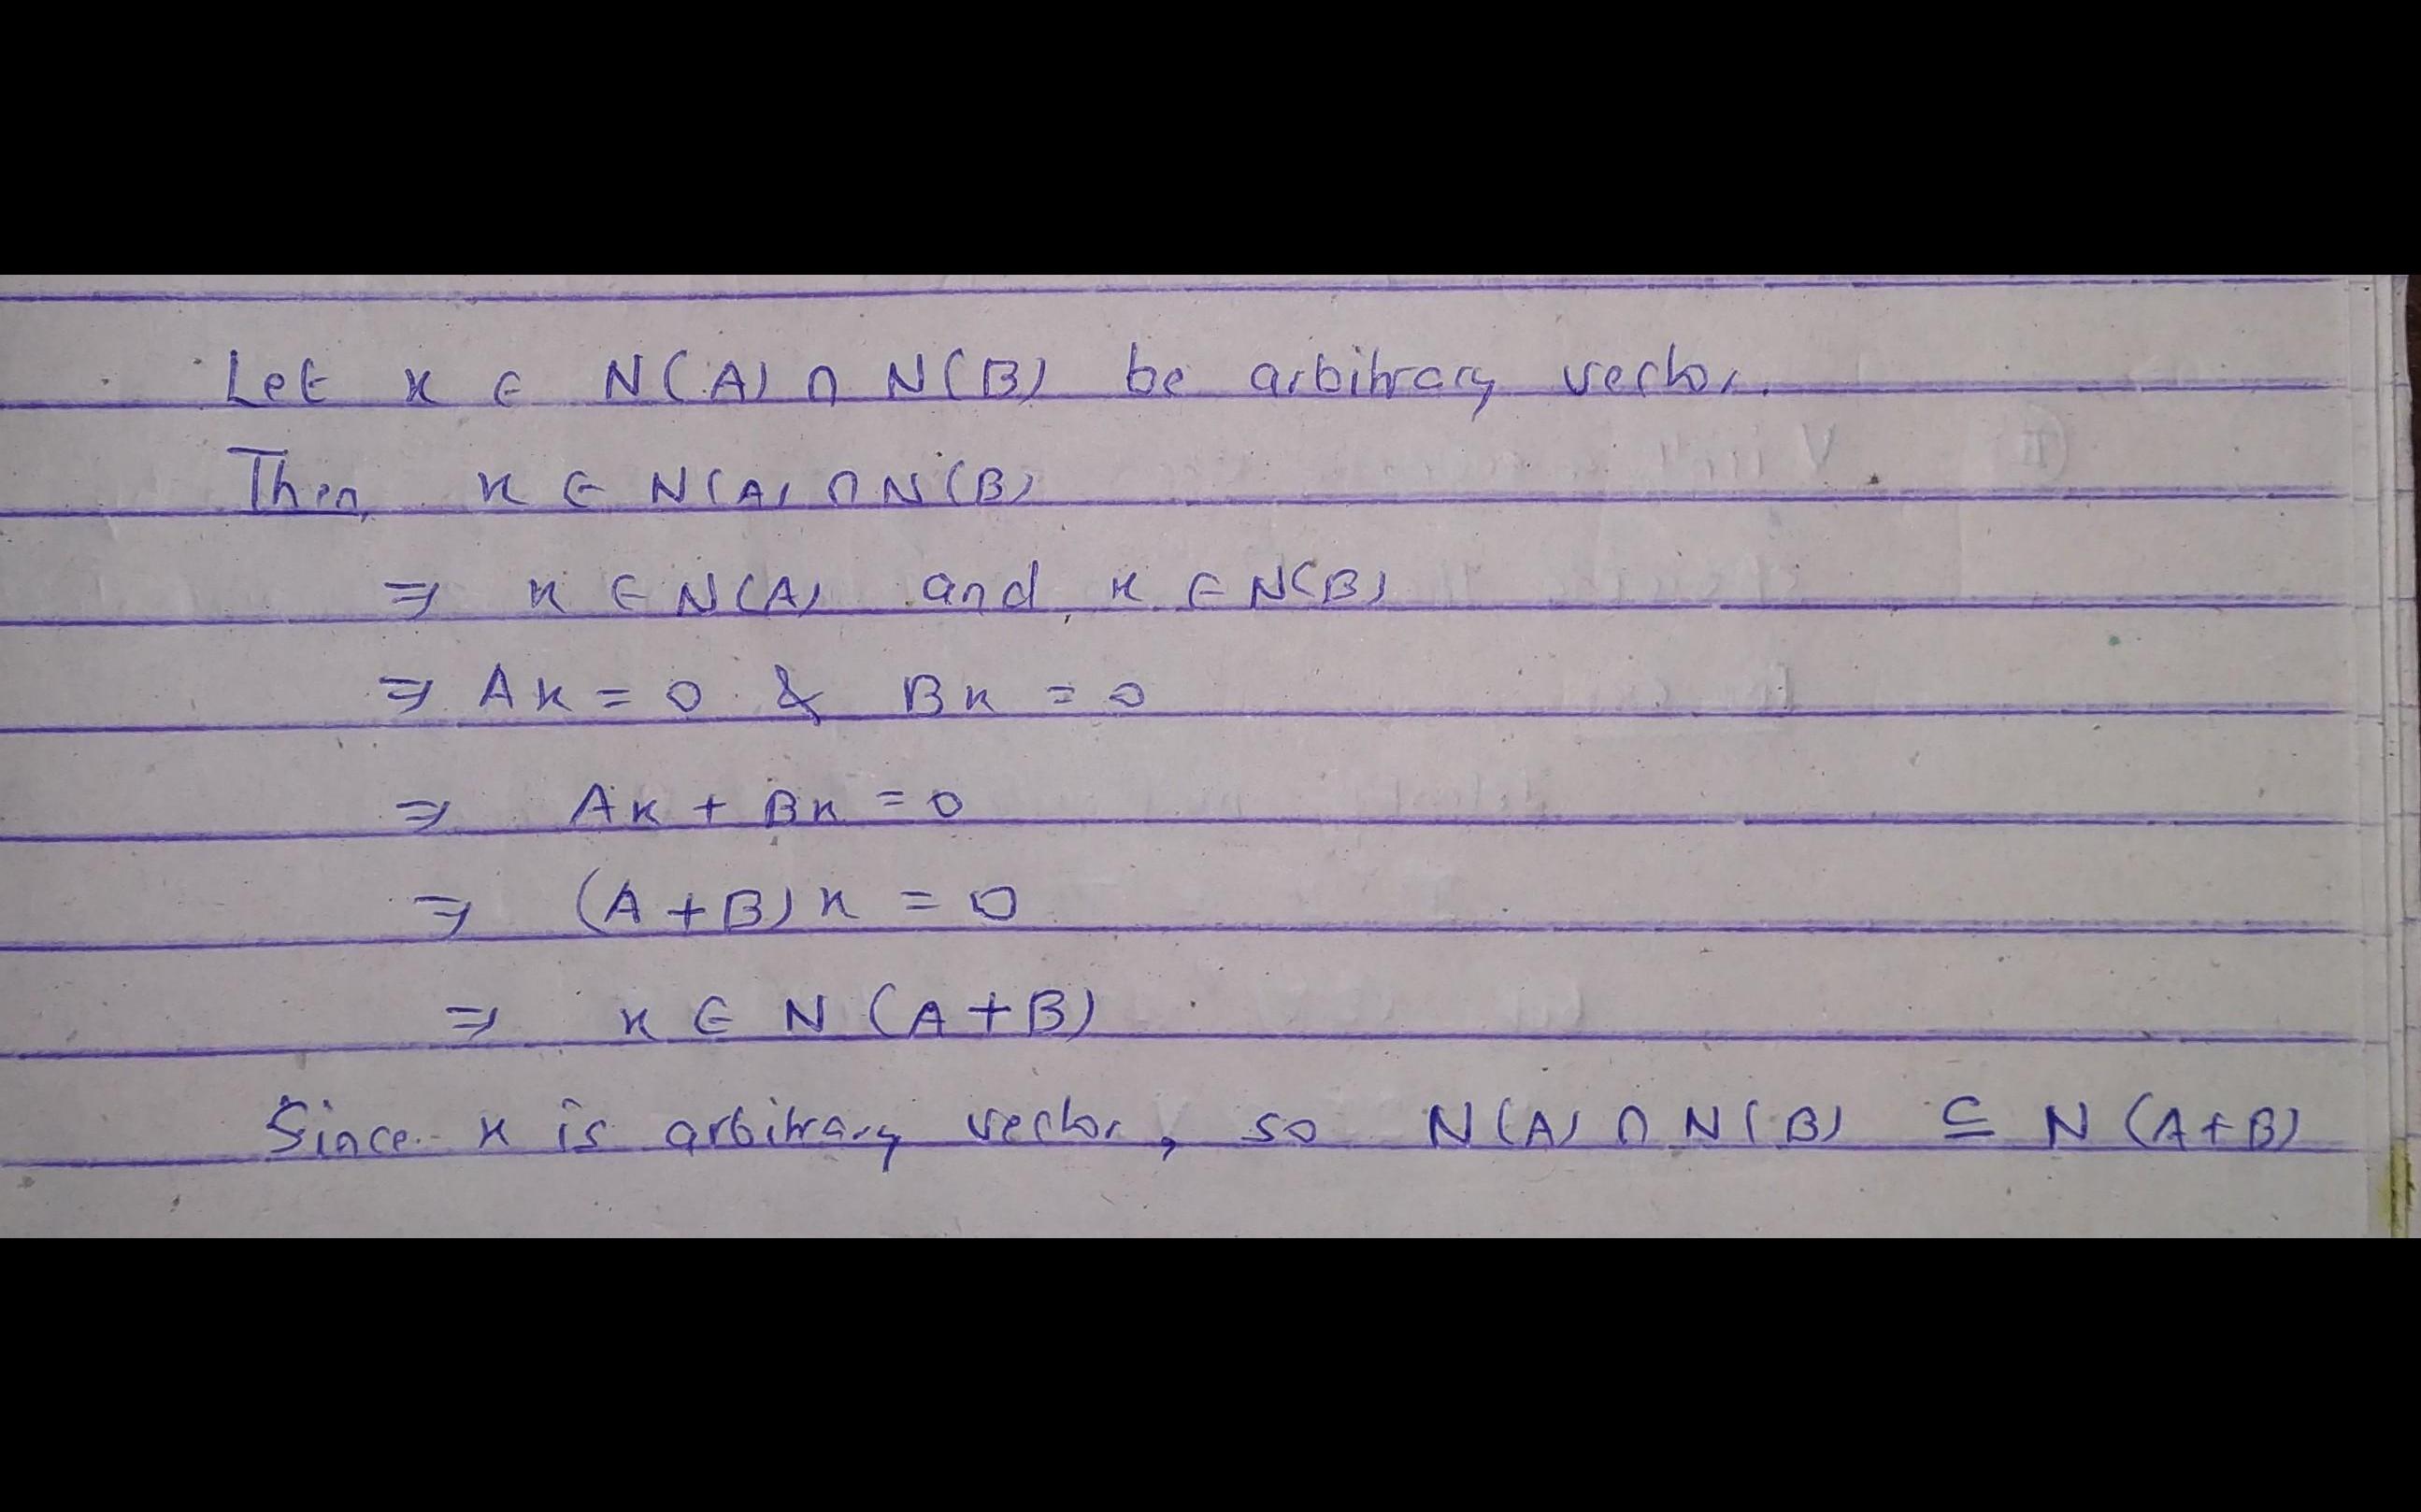 Let x ∈ N(A) ∩ N(B) be arbitrary vector.
Then, x ∈ N(A) ∩ N(B)
⇒ x ∈ N(A) and x ∈ N(B)
⇒ Ax = 0 & Bx = 0
⇒ Ax + Bx = 0
⇒ (A+B)x = 0
⇒ x ∈ N(A+B)
Since x is arbitrary vector, so N(A) ∩ N(B) ⊆ N(A+B)